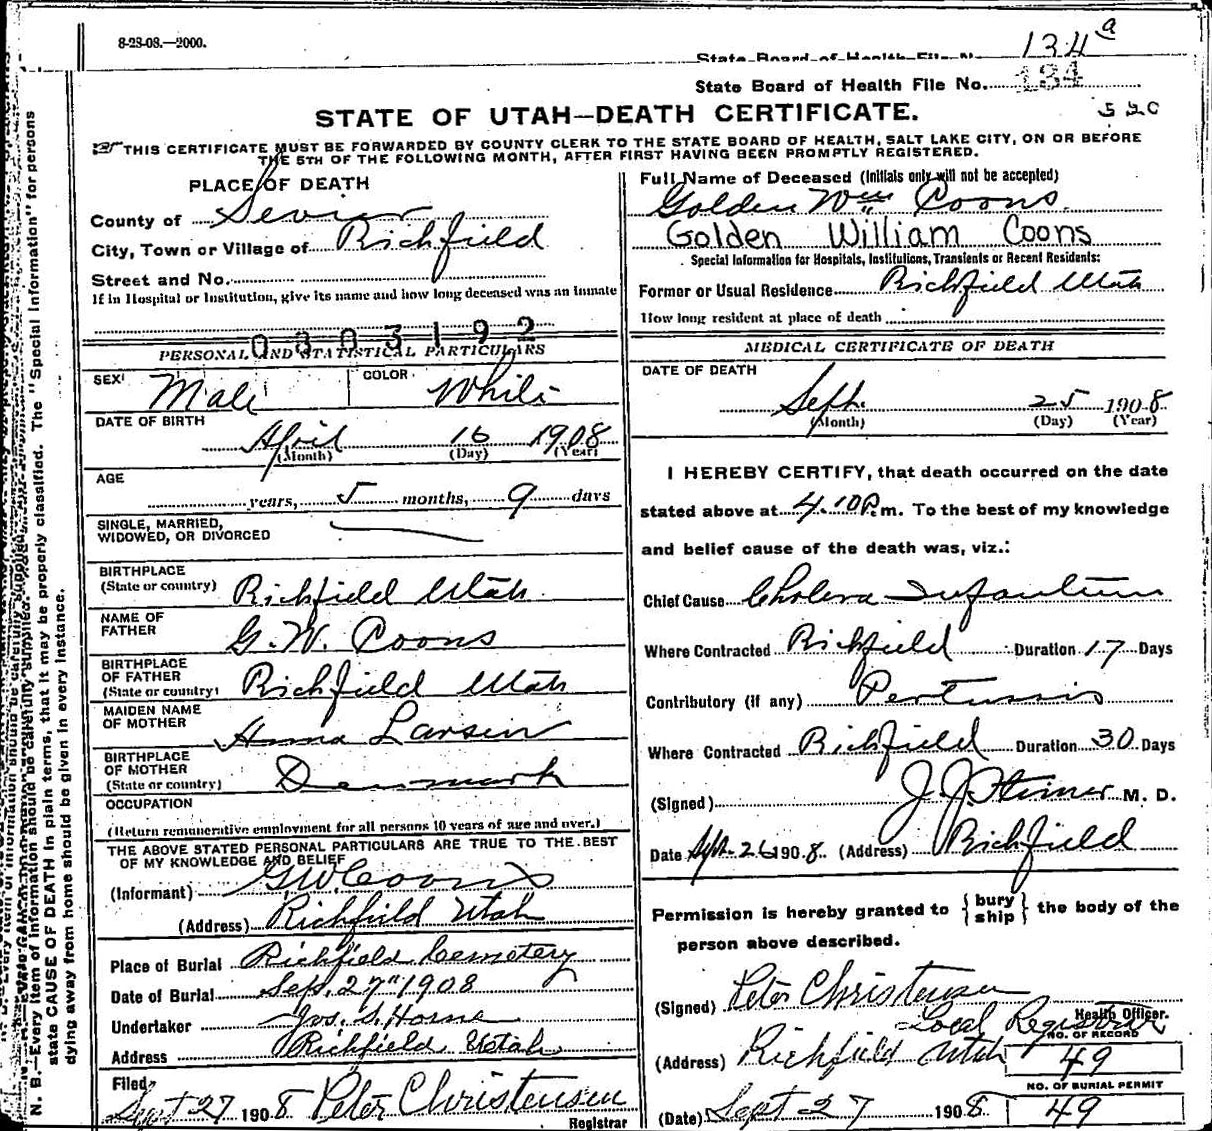 8-28-08.—2000.
134a
State Board of Health File No.
State Board of Health File No. 134
STATE OF UTAH—DEATH CERTIFICATE.
520
THIS CERTIFICATE MUST BE FORWARDED BY COUNTY CLERK TO THE STATE BOARD OF HEALTH, SALT LAKE CITY, ON OR BEFORE
THE 5TH OF THE FOLLOWING MONTH, AFTER FIRST HAVING BEEN PROMPTLY REGISTERED.
PLACE OF DEATH
County of Sevier
City, Town or Village of Richfield
Street and No.
If in Hospital or Institution, give its name and how long deceased was an inmate
0303192
PERSONAL AND STATISTICAL PARTICULARS
SEX Male COLOR White
DATE OF BIRTH
April 16 1908
(Month) (Day) (Year)
AGE
years, 5 months, 9 days
SINGLE, MARRIED,
WIDOWED, OR DIVORCED
BIRTHPLACE
(State or country) Richfield Utah
NAME OF
FATHER G. W. Coons
BIRTHPLACE
OF FATHER
(State or country) Richfield Utah
MAIDEN NAME
OF MOTHER Anna Larsen
BIRTHPLACE
OF MOTHER
(State or country) Denmark
OCCUPATION
(Return remunerative employment for all persons 10 years of age and over.)
THE ABOVE STATED PERSONAL PARTICULARS ARE TRUE TO THE BEST
OF MY KNOWLEDGE AND BELIEF
(Informant) G W Coons
(Address) Richfield Utah
Place of Burial Richfield Cemetery
Date of Burial Sept. 27" 1908
Undertaker Jos. S. Horne
Address Richfield Utah
Filed
Sept 27 1908 Peter Christensen
Registrar
Full Name of Deceased (Initials only will not be accepted)
Golden Wm Coons
Golden William Coons
Special Information for Hospitals, Institutions, Transients or Recent Residents:
Former or Usual Residence Richfield Utah
How long resident at place of death
MEDICAL CERTIFICATE OF DEATH
DATE OF DEATH
Sept. 25 1908
(Month) (Day) (Year)
I HEREBY CERTIFY, that death occurred on the date
stated above at 4.10 P. m. To the best of my knowledge
and belief cause of the death was, viz.:
Chief Cause Cholera Infantum
Where Contracted Richfield Duration 17 Days
Contributory (if any) Pertussis
Where Contracted Richfield Duration 30 Days
(Signed) J. J. Steiner M. D.
Date Sept. 26 1908 (Address) Richfield
Permission is hereby granted to {bury ship} the body of the
person above described.
(Signed) Peter Christensen
Health Officer.
Local Registrar
NO. OF RECORD
(Address) Richfield Utah 49
NO. OF BURIAL PERMIT
(Date) Sept 27 1908 49
N. B.—Every item of information should be carefully supplied.
state CAUSE OF DEATH in plain terms, that it may be properly classified. The "Special Information" for persons
dying away from home should be given in every instance.